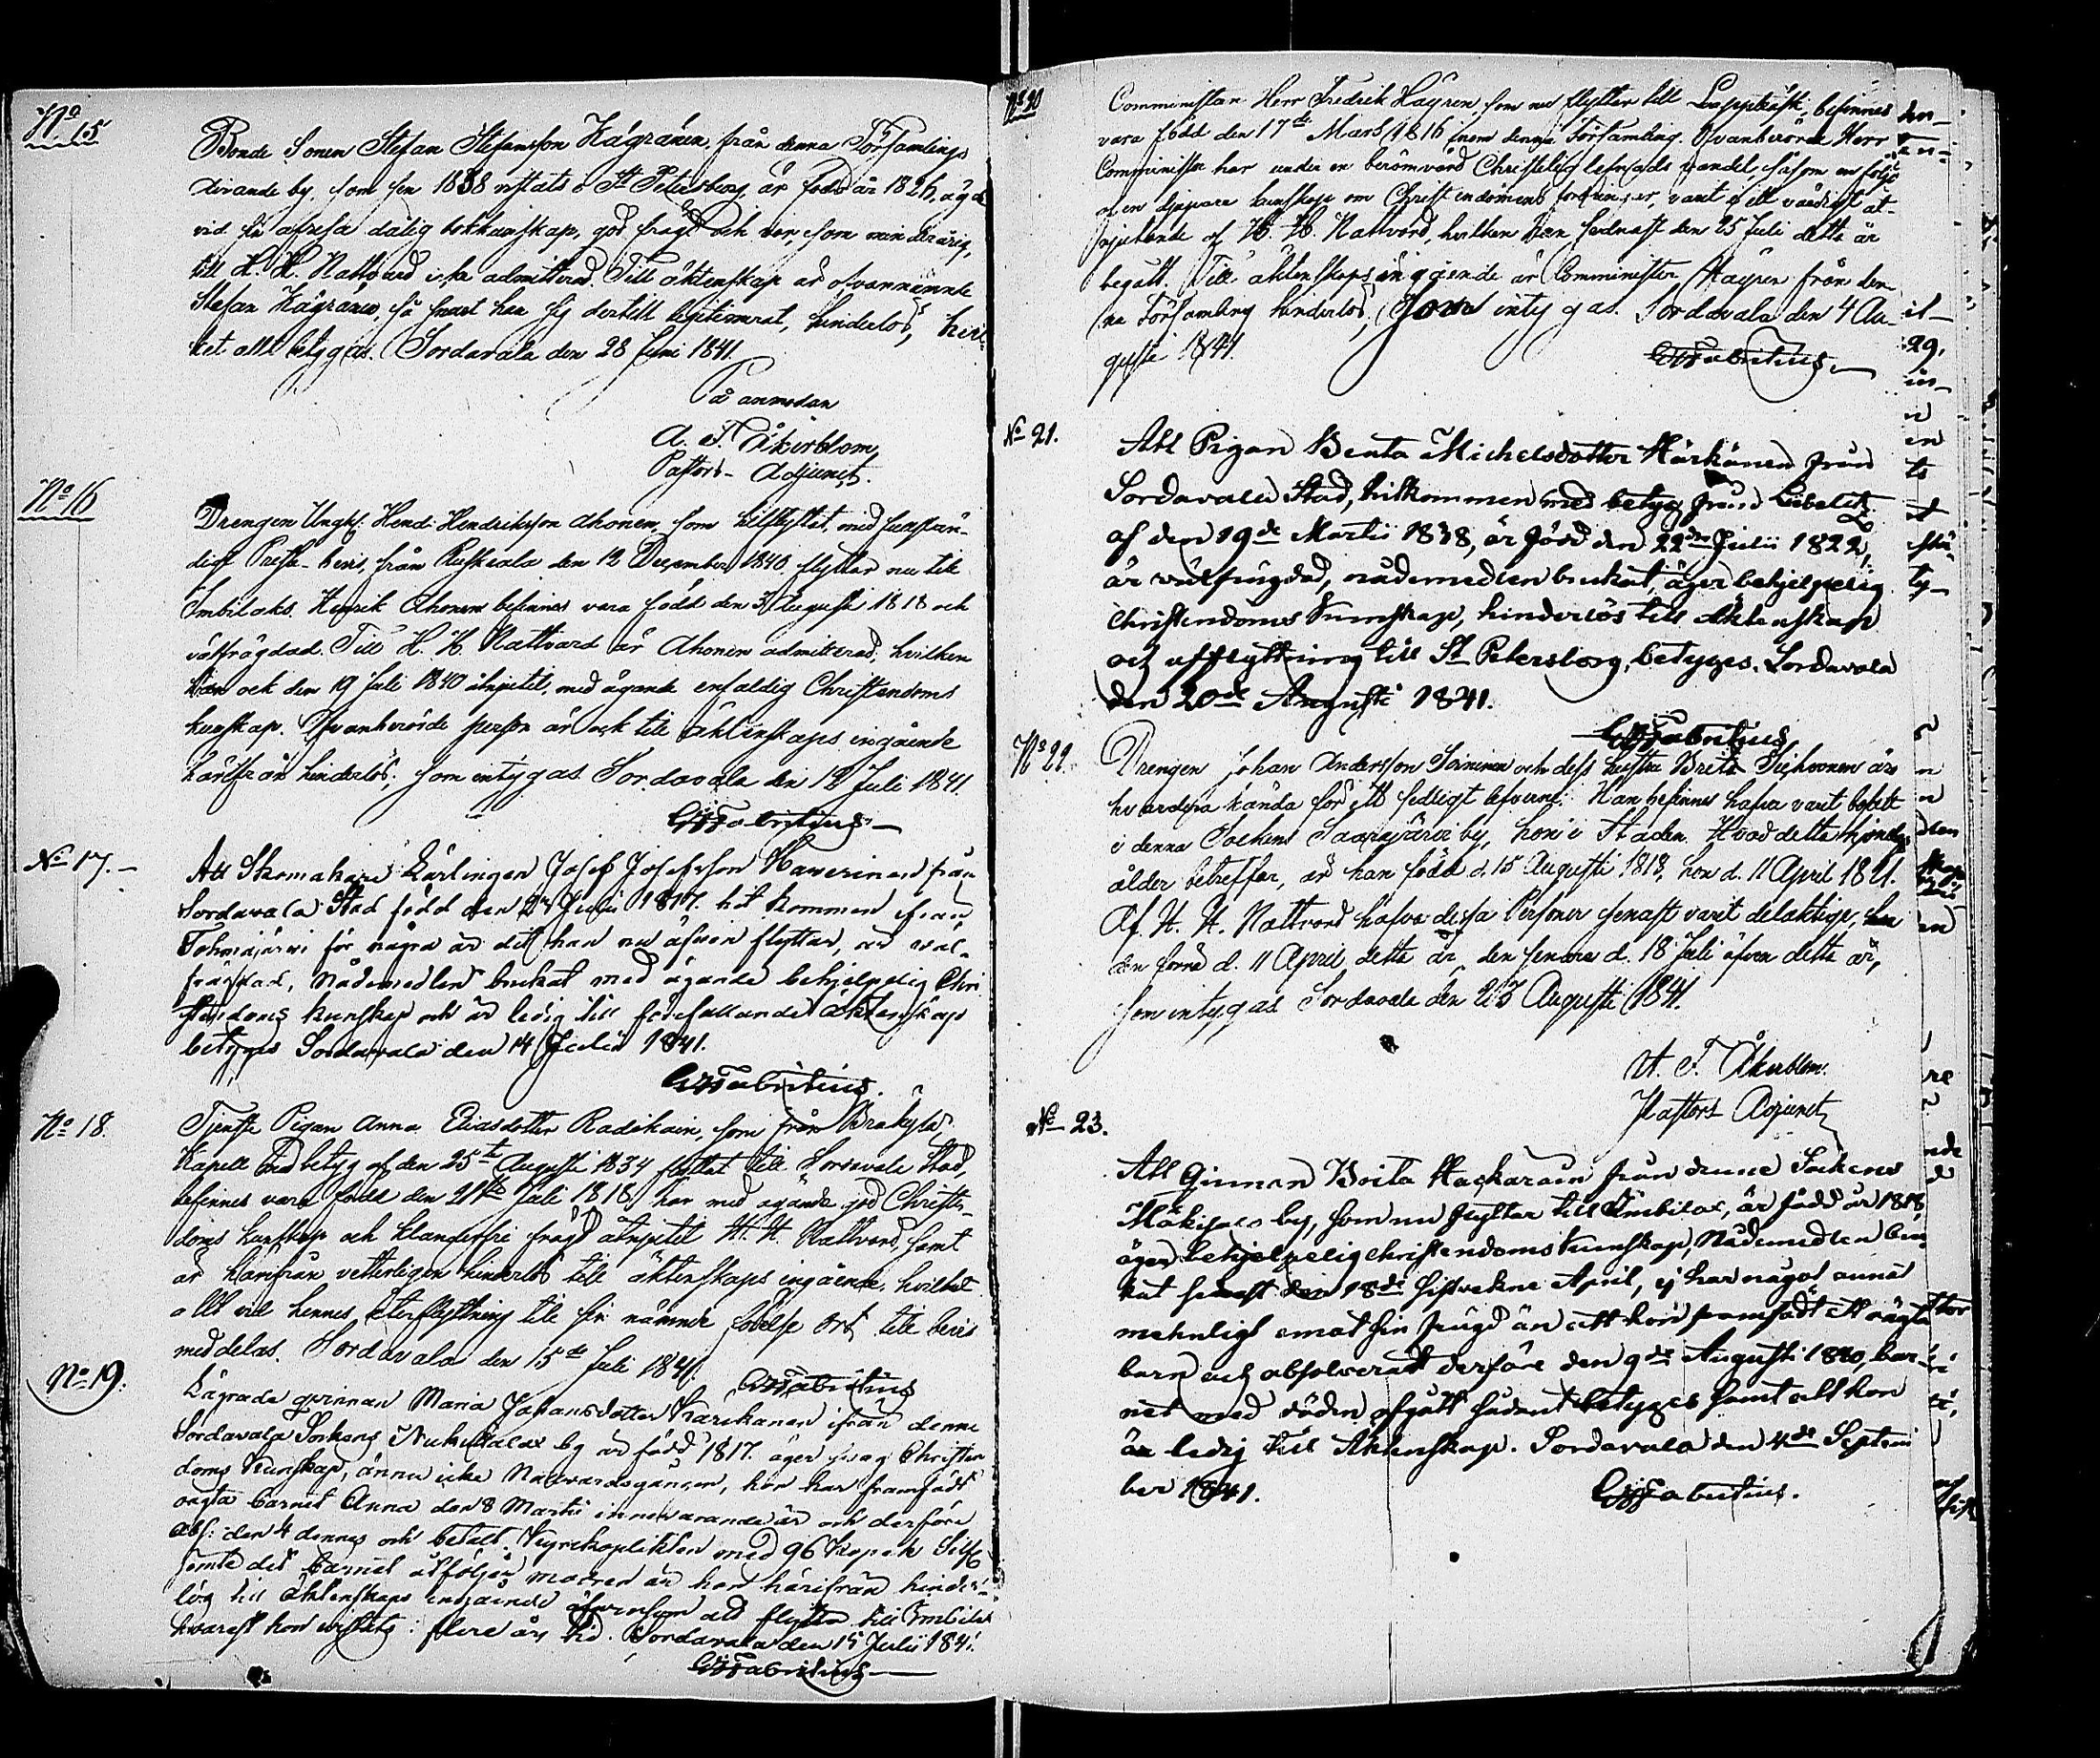 No 15
Bonde Sonen Stefan Stefansson Kägränen, från denna Församlings
by, som sen 1838 vistats i St Petersborg, är född år 1826, äger
vid sin afresa dålig bokkunskap, god frägd och är, som minderårig,
till H. H. Nattvard icke admitterad. Till äktenskap är ofvannämnde
Stefan Kägränen, så snart han sig dertill legitimerat, hinderlös, hvil-
ket allt betygas. Sordavala den 28 Juni 1841.
På anmodan
A. F. Åkerblom
Pastors-Adjunct.
No 16
Drengen Ungk. Hendr. Hendriksson Ahonen, som tillflyttat, med fullstän-
digt Preste-bevis, från Ruskeala den 12 December 1840 flyttar nu till
Imbilaks. Henrik Ahonen befinnes vara född den 3 Augusti 1818 och
välfrägdad. Till H. H. Nattvard är Ahonen admitterad, hvilken
han ock den 19 Juli 1840 åtnjutit, med ägande enfaldig Christendoms
kunskap. Ofvanberörde person är ock till äktenskaps ingående
härifrån hinderlös; som intygas Sordavala den 12 Juli 1841.
Fabritius
No 17.-
Att Skomakare Lärlingen Josef Josefsson Haverinen från
Sordavala Stad född den Julii 1817. hit kommen ifrån
Tohmajärvi för några år dit han nu äfven flyttar, är väl-
frägdad, Nådemedlen brukat med ägande behjelpelig Chri
stendoms kunskap och är ledig till förefallande äktenskap
betyges Sordavala den 14 Julii 1841.
Fabritius.
No 18.
Tjenste Pigan Anna Eliasdotter Radikain, som från Brakylä
Kapell med betyg af den 25te Augusti 1834 flyttat till Sordavala Stad,
befinnes vara född den 21te Juli 1818, har med ägande god Christen-
doms kunskap och klanderfri frägd åtnjutit H. H. Nattvard, samt
är härifrån vetterligen hinderlös till äktenskaps ingående, hvilket
allt vid hennes återflyttning till sin nämnde födelse ort till bevis
meddelas. Sordavala den 15de Juli 1841.
Fabritius
No 19.
Lägrade qvinnan Maria Johansdotter Karikanen ifrån denne
Sordavala Sockens by är född 1817. äger svag Christen
doms kunskap, ännu icke Nattvardsgången, hon har framfödt
oägta barnet Anna den 8 Martii innevarande år och derföre
abs: den 4 dennes och betalt Kyrkoplikten med 96 Kopek Silf.
samt det barnet åtföljer modren är hon härifrån hinder-
lös till äktenskaps ingående äfvensom att flytta till Imbilax
hvarest hon vistats i flere års tid. Sordavala den 15 Julii 1841.
Fabritius
No 20
Comminister Herr Fredrik Häyren som nu flyttar till Lappträsk befinnes
vara född den 17de Mars 1816 inom denna Församling. Ofvanberörde Herr
Comminister har under en berömvärd Christelig lefnads vandel, såsom en följd
af en djupare kunskap om Christendomens fordringar, varit i ett värdigt åt-
njutande af H. H. Nattvard, hvilken han sednast den 25 Juli detta år
begått. Till äktenskaps ingående är Comminister Häyren från den-
na Församling hinderlös; Som intygas. Sordavala den 4 Au-
gusti 1841.
Fabritius
No 21.
Att Pigan Beata Michelsdotter Härkönen från
Sordavala Stad, hitkommen med betyg från Libelitz
af den 19de Martii 1838, är född den 22dre Julii 1822,
är välfrägdad, nådemedlen brukat, äger behjelpelig
Christendoms Kunskap, hinderlös till äktenskap
och afflyttning till St Petersborg, betyges. Sordavala
den 20de Augusti 1841.
Fabritius
No 22.
Drengen Johan Andersson Soininen och dess hustru Brita Sihvonen äro
hvardera kända för ett sedligt lefverne. Han befinnes hafva varit bosatt
i denna Sockens Saarajärvi by, hon i Staden. Hvad detta hjonelags
ålder beträffar, är han född d. 15 Augusti 1818, hon d. 11 April 1821.
Af H. H. Nattvard hafva dessa Personer senast varit delaktige,
den förra d. 11 April detta år, den senare d. 18 Juli äfven detta år,
som intygas Sordavala den 23 Augusti 1841.
A. F. Åkerblom.
Pastors Adjunct
No 23.
Att Qvinnan Brita Hackarain från denna Sockens
by, som nu flyttar till Imbilax, är född år 1818,
äger behjelpelig christendoms kunskap, Nådemedlen bru-
kat senast den 18de sistvekne April, ej har något annat
mehnligt emot sin frägd än att hon framfödt ett oägta
barn och absolverat derföre den 9de Augusti 1840, bar-
net med döden afgått sådant betyges samt att hon
är ledig till Äktenskap. Sordavala den 4de Septem
ber 1841.
Fabritius.